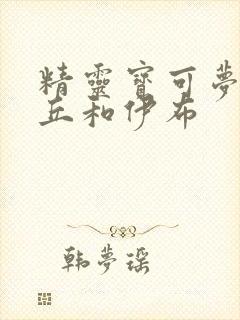 精靈寶可夢
丘和伊布
韩夢瑶